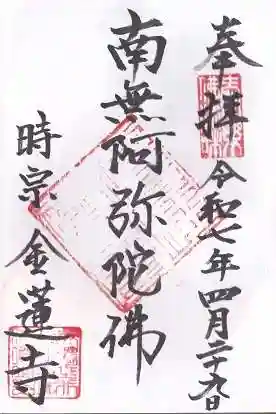 奉拝
令和七年四月二十九日
南無阿弥陀佛
時宗
金蓮寺